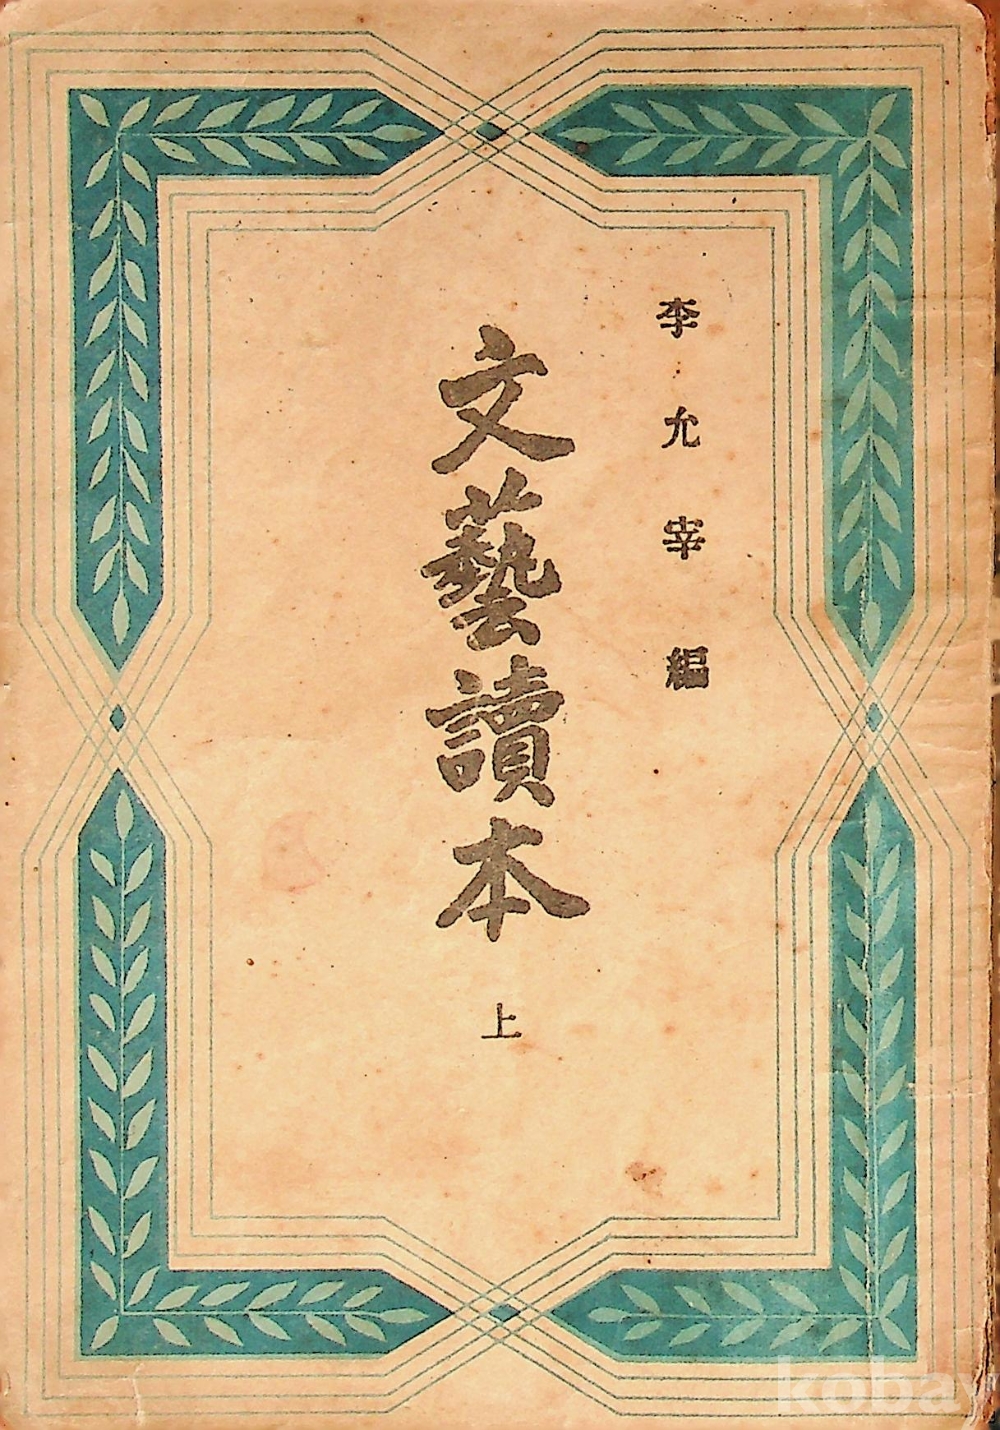 李允宰編
文藝讀本
上
kobay